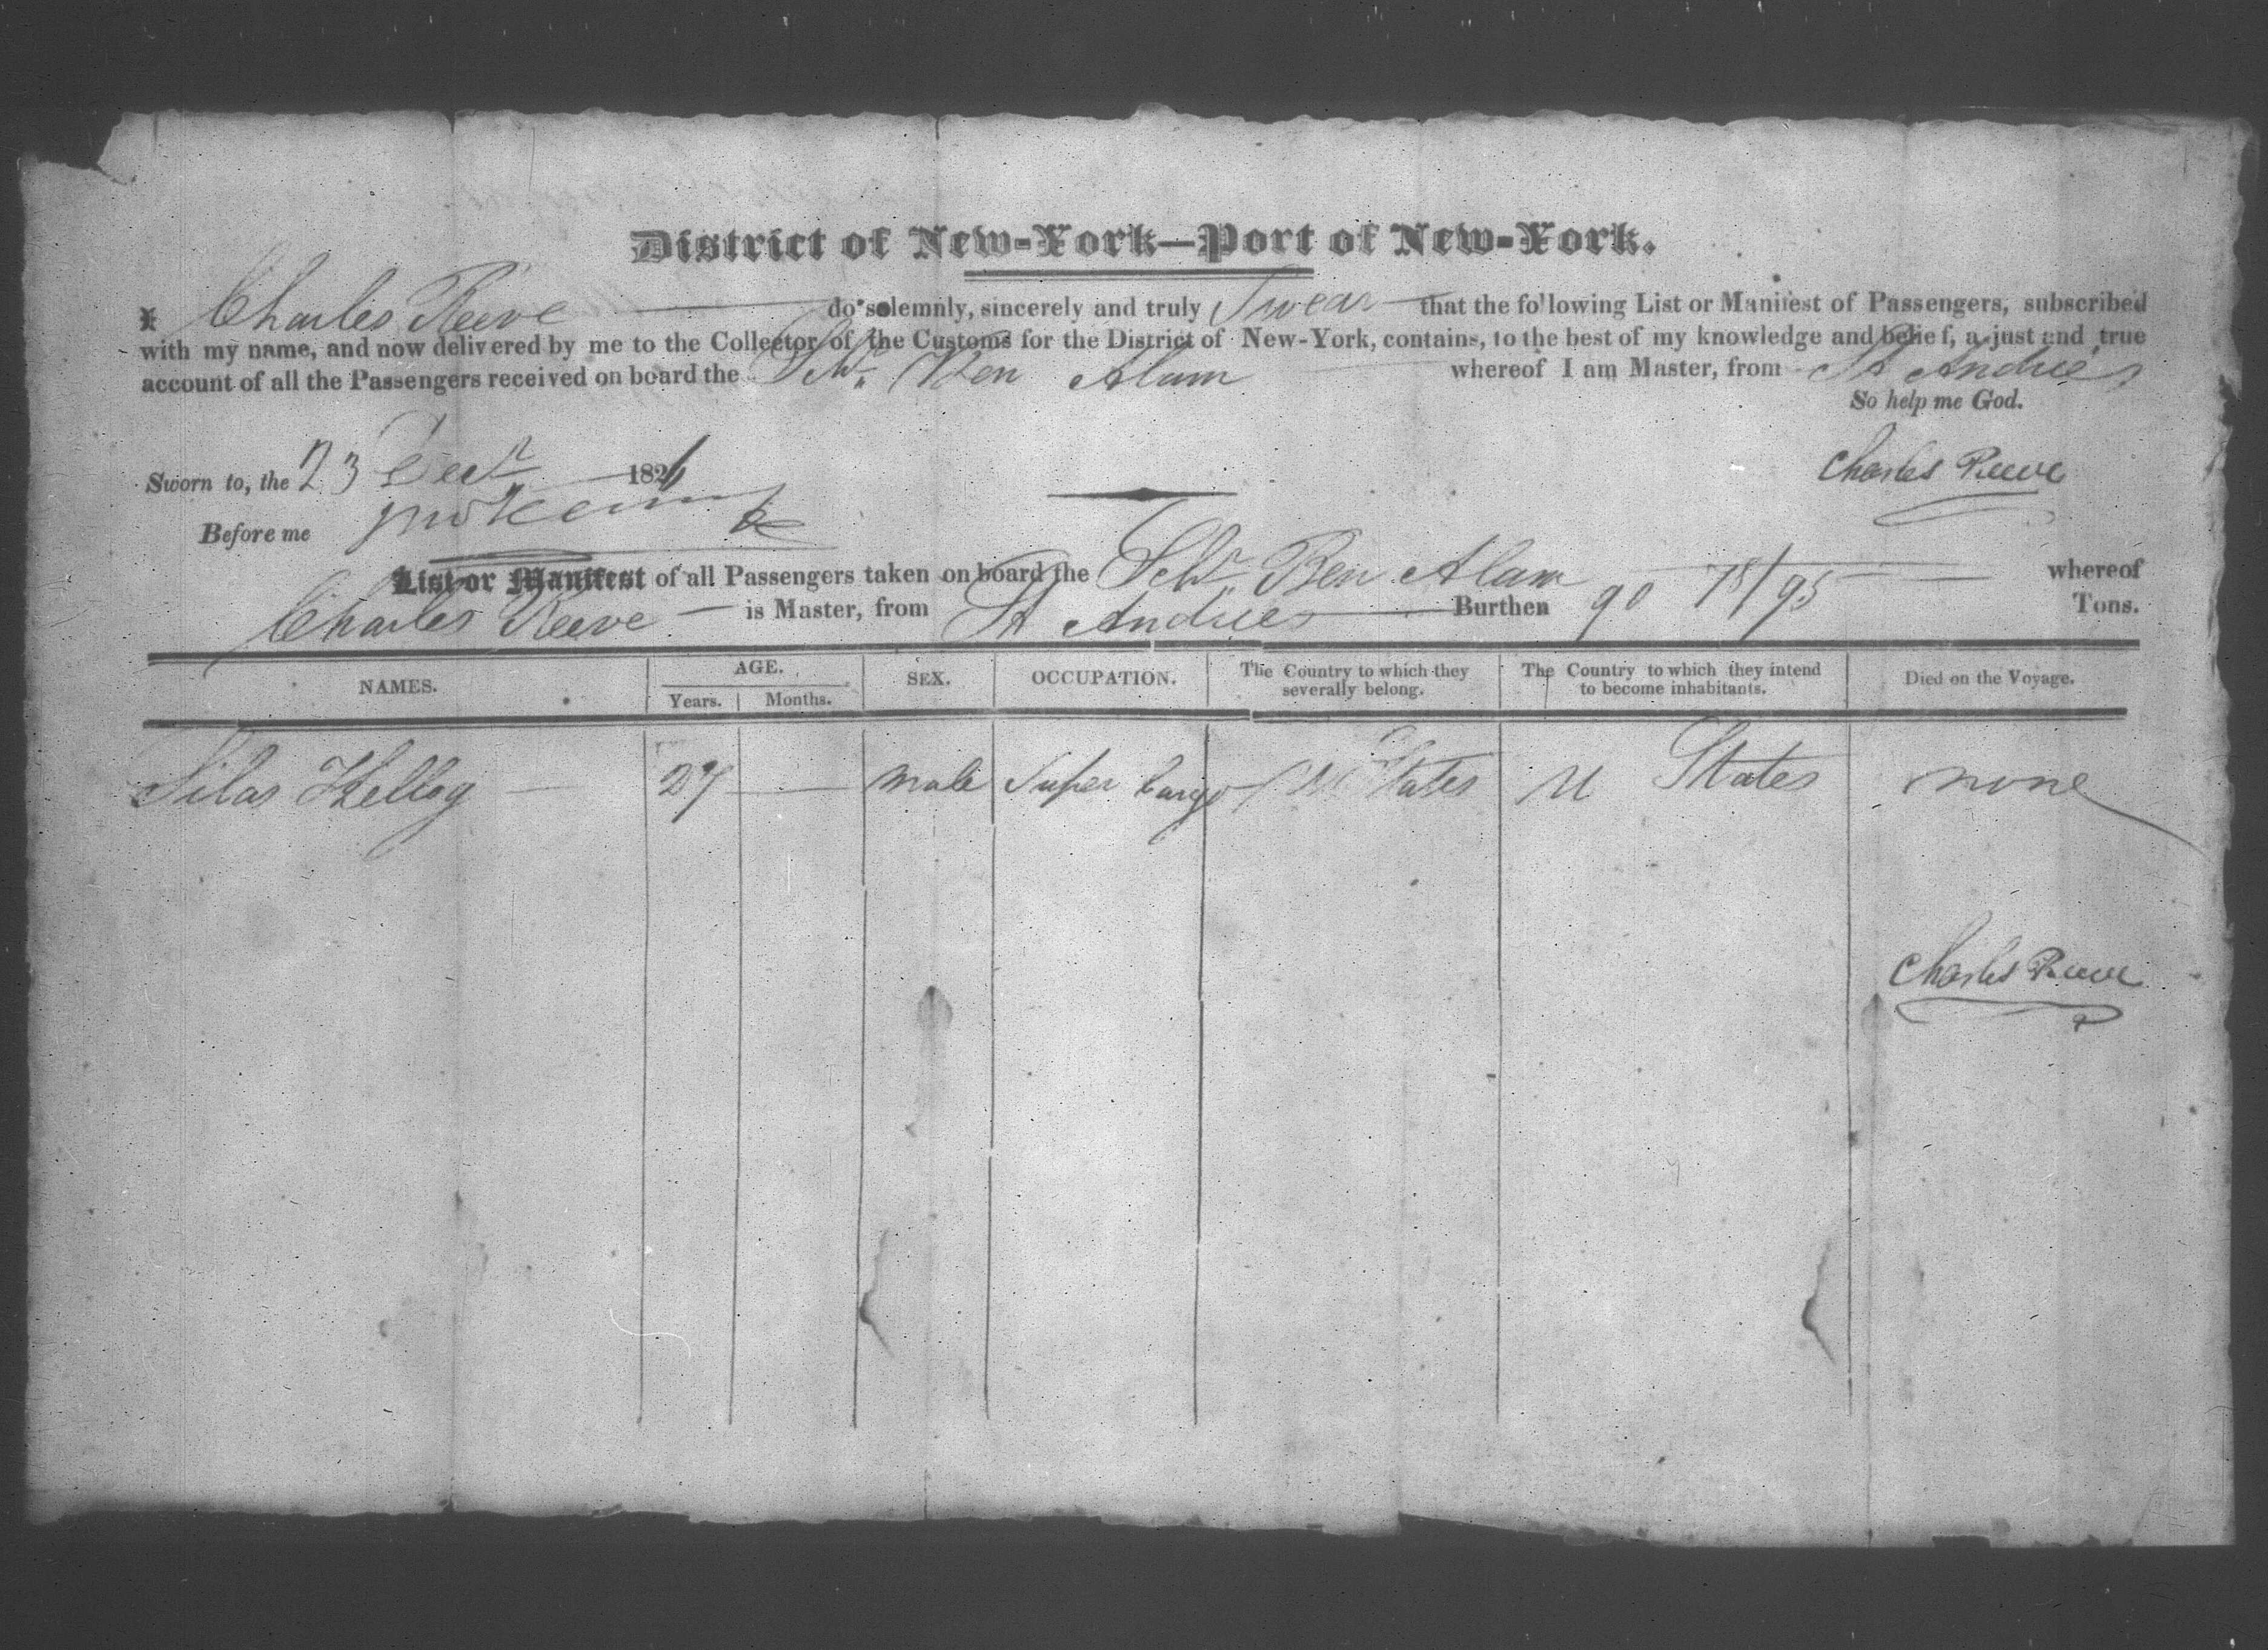 District of New-York—Port of New-York.
I Charles Reeve do solemnly, sincerely and truly Swear that the following List or Manifest of Passengers, subscribed
with my name, and now delivered by me to the Collector of the Customs for the District of New-York, contains, to the best of my knowledge and belief, a just and true
account of all the Passengers received on board the Schr. Ben Alam whereof I am Master, from St Andries
So help me God.
Sworn to, the 23 Decr 1826 Charles Reeve
Before me
List or Manifest of all Passengers taken on board the Schr Ben Alam whereof
Charles Reeve is Master, from St Andries Burthen 90 78/95 Tons.
NAMES. AGE. SEX. OCCUPATION. The Country to which they severally belong. The Country to which they intend to become inhabitants. Died on the Voyage.
Years. Months.
Silas Kellog 27 male Super Cargo U States U States none
Charles Reeve